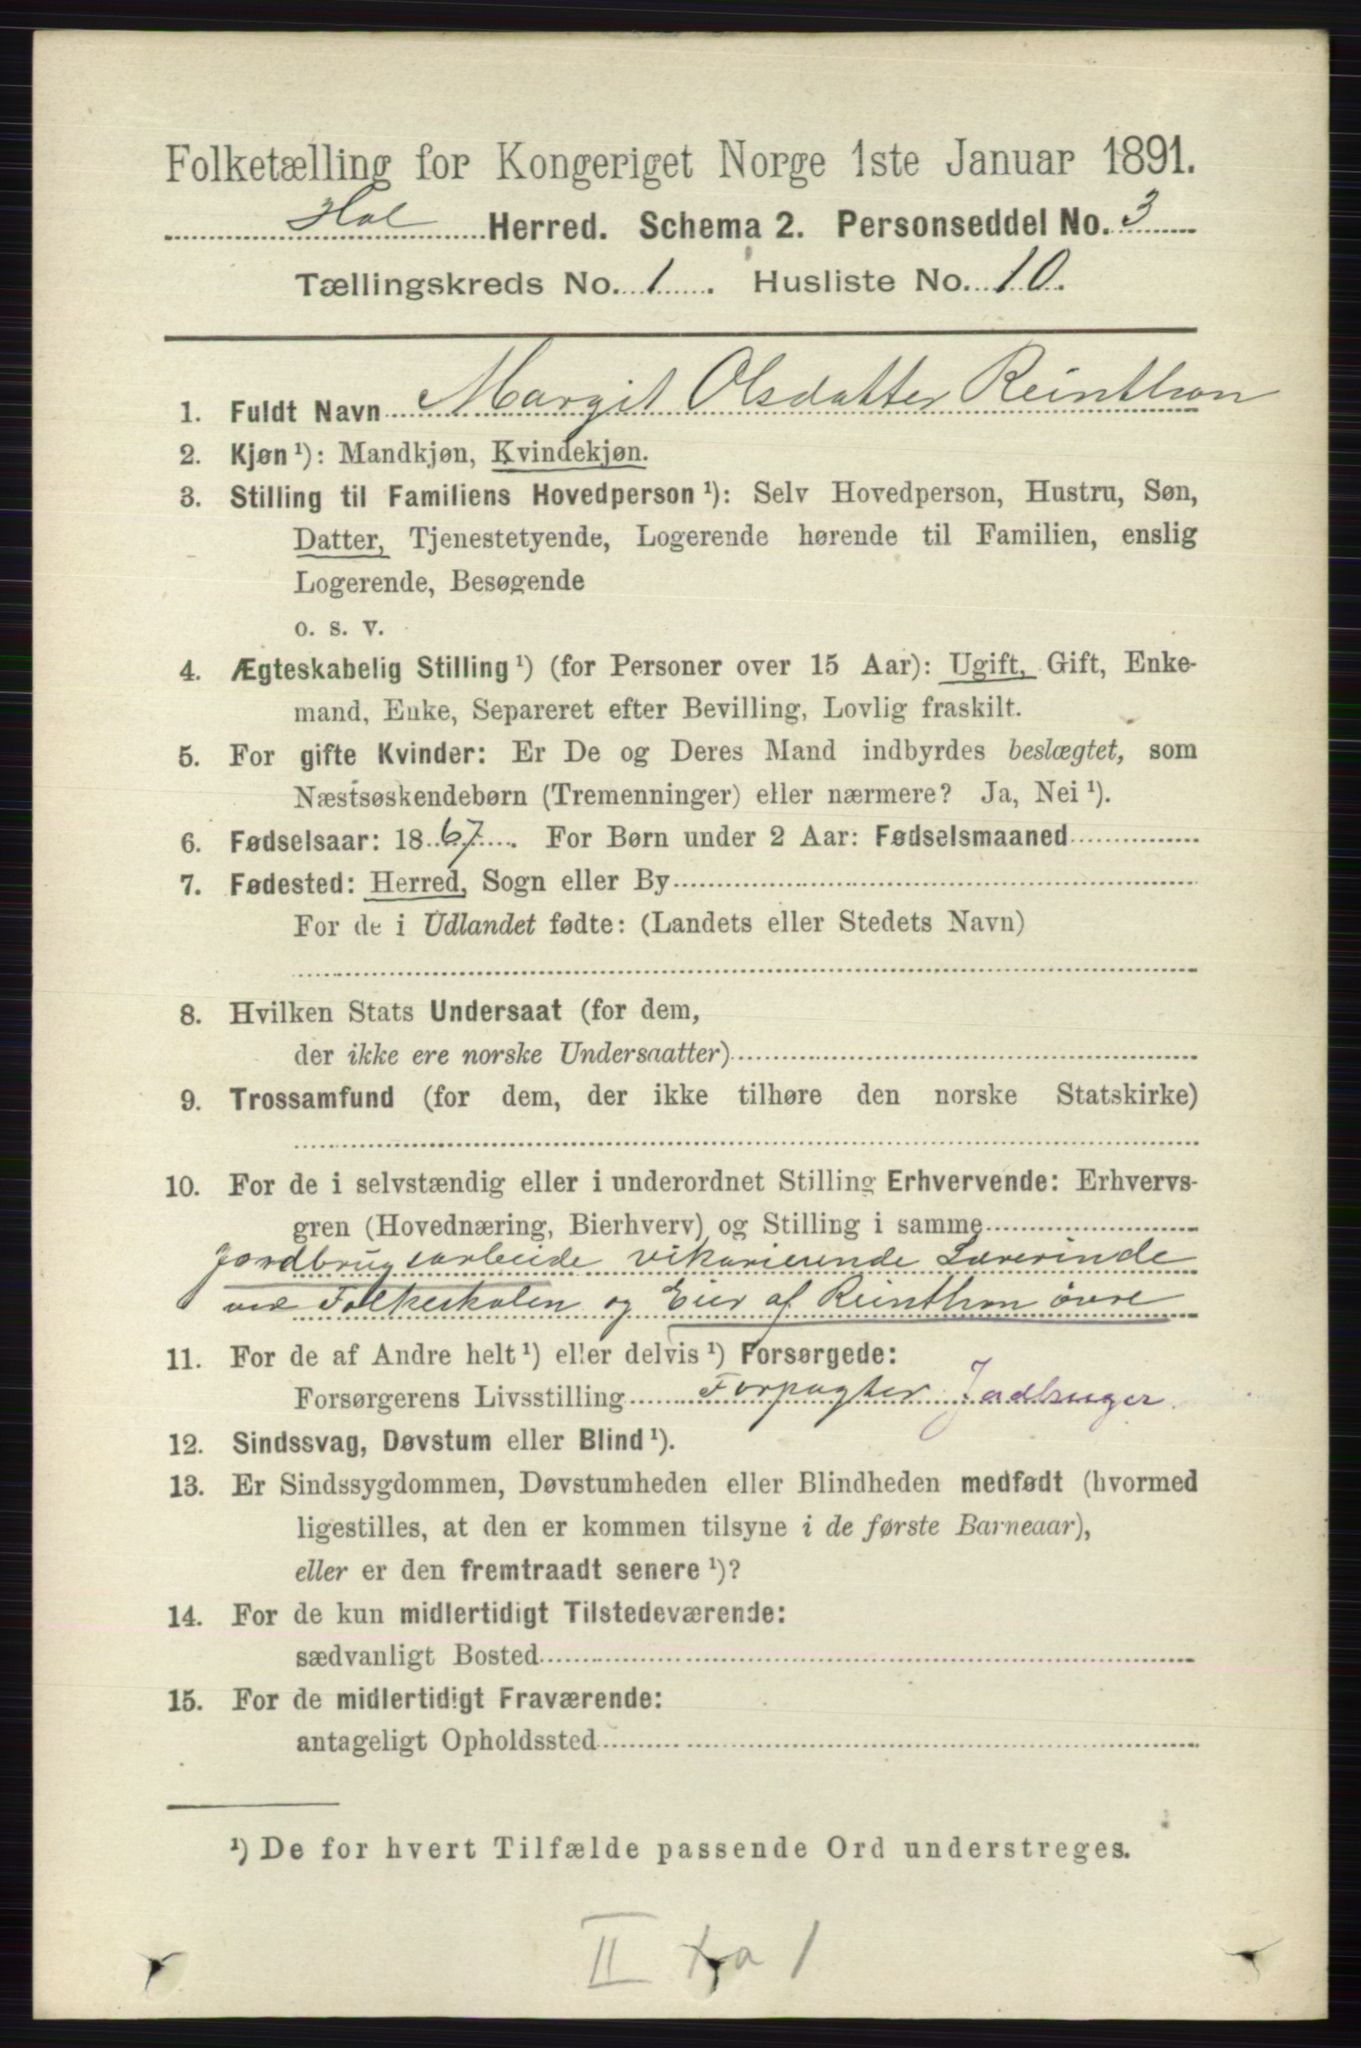 Folketælling for Kongeriget Norge 1ste Januar 1891.
Hol Herred. Schema 2. Personseddel No. 3
Tællingskreds No. 1. Husliste No. 10.
1. Fuldt Navn Margit Olsdatter Reinthon
2. Kjøn ¹): Mandkjøn, Kvindekjøn.
3. Stilling til Familiens Hovedperson ¹): Selv Hovedperson, Hustru, Søn,
Datter, Tjenestetyende, Logerende hørende til Familien, enslig
Logerende, Besøgende
o. s. v.
4. Ægteskabelig Stilling ¹) (for Personer over 15 Aar): Ugift, Gift, Enke-
mand, Enke, Separeret efter Bevilling, Lovlig fraskilt.
5. For gifte Kvinder: Er De og Deres Mand indbyrdes beslægtet, som
Næstsøskendebørn (Tremenninger) eller nærmere? Ja, Nei ¹).
6. Fødselsaar: 1867. For Børn under 2 Aar: Fødselsmaaned
7. Fødested: Herred, Sogn eller By
For de i Udlandet fødte: (Landets eller Stedets Navn)
8. Hvilken Stats Undersaat (for dem,
der ikke ere norske Undersaatter)
9. Trossamfund (for dem, der ikke tilhøre den norske Statskirke)
10. For de i selvstændig eller i underordnet Stilling Erhvervende: Erhvervs-
gren (Hovednæring, Bierhverv) og Stilling i samme
Jordbrugsarbeide vikarierende Lærerinde
ved Folkeskolen og Eier af Reinthon övre
11. For de af Andre helt ¹) eller delvis ¹) Forsørgede:
Forsørgerens Livsstilling Forpagter Jordbruger
12. Sindssvag, Døvstum eller Blind ¹).
13. Er Sindssygdommen, Døvstumheden eller Blindheden medfødt (hvormed
ligestilles, at den er kommen tilsyne i de første Barneaar),
eller er den fremtraadt senere ¹)?
14. For de kun midlertidigt Tilstedeværende:
sædvanligt Bosted
15. For de midlertidigt Fraværende:
antageligt Opholdssted
¹) De for hvert Tilfælde passende Ord understreges.
II 1